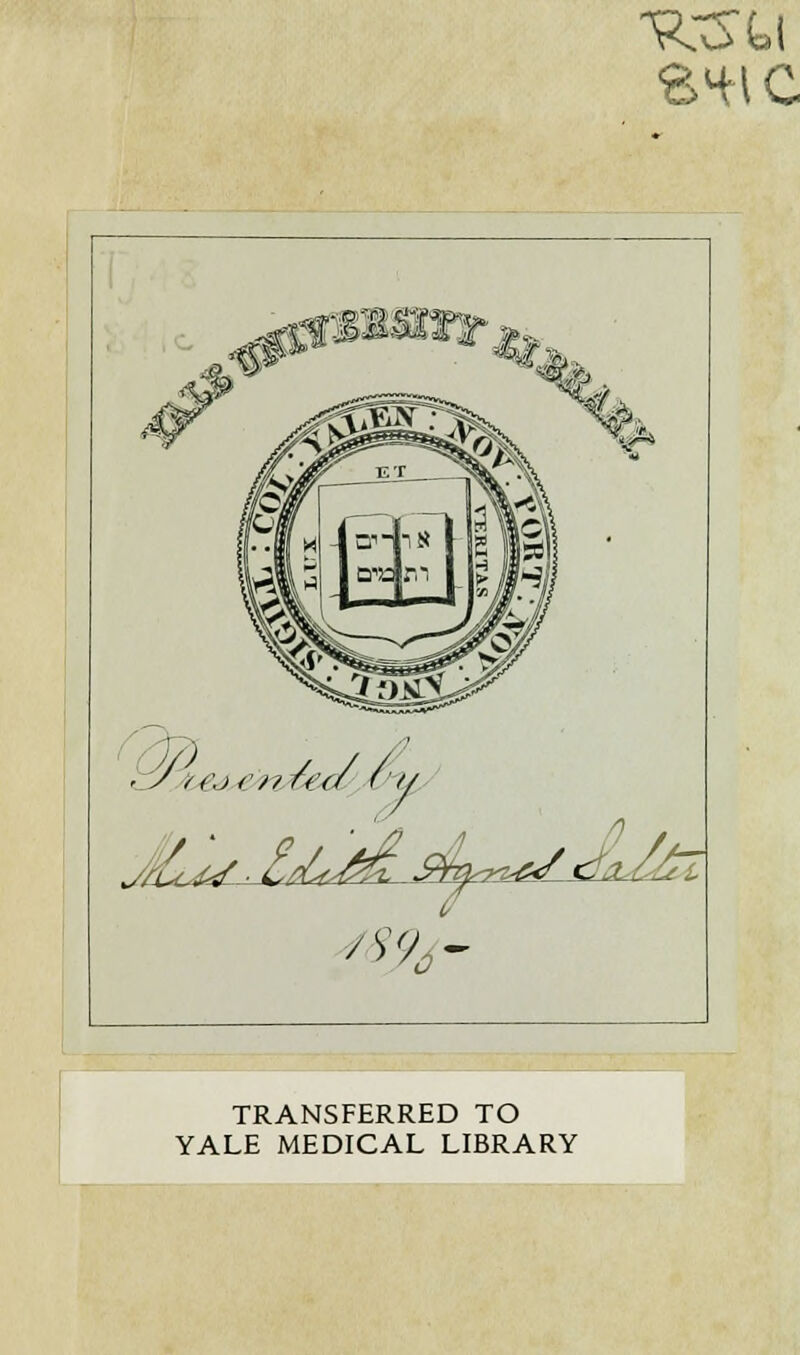 RJ61
841C
YALE UNIVERSITY LIBRARY.
SIGILL : COL : YALEN : NOV : PORT : NOV : ANGL :
ET
LUX
VERITAS
אורים
ותמים
Presented by
Miss Edith Agnes Salter
1896-
TRANSFERRED TO
YALE MEDICAL LIBRARY